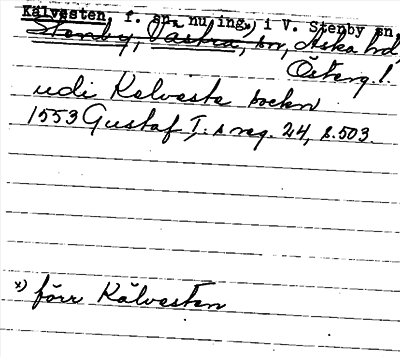 Kälvesten, f. sn, nu ing. x) i V. Stenby sn
Stenby, Västra, sn, Aska hd,
Österg. l.
udi Kelvesta socken
1553 Gustaf I:s reg. 24, s. 503.
x) förr Kälvesten